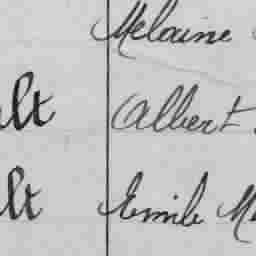 Melaine
lt Albert
lt Emile